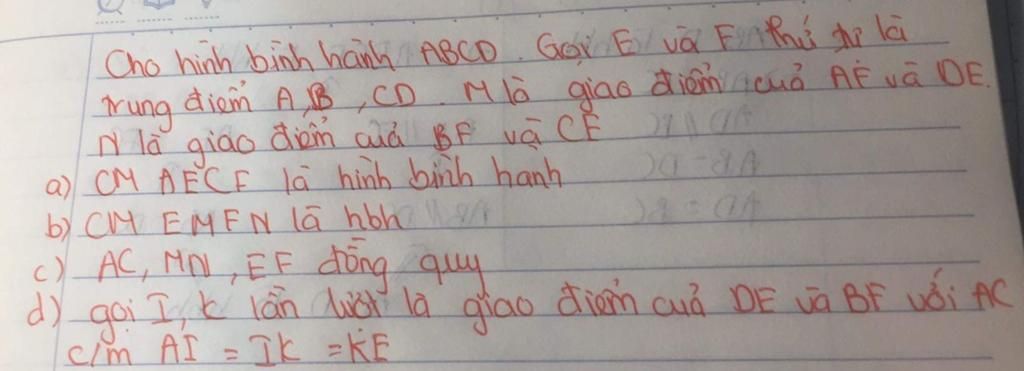 Cho hình bình hành ABCD. Gọi E và F thứ tự là
trung điểm A,B, CD. M là giao điểm của AF và DE.
N là giao điểm của BF và CE
a) CM AECF là hình bình hanh
b) CM EMFN là hbh
c) AC, MN, EF đồng quy
d) gọi I, K lần lượt là giao điểm của DE và BF với AC
c/m AI = IK = KE